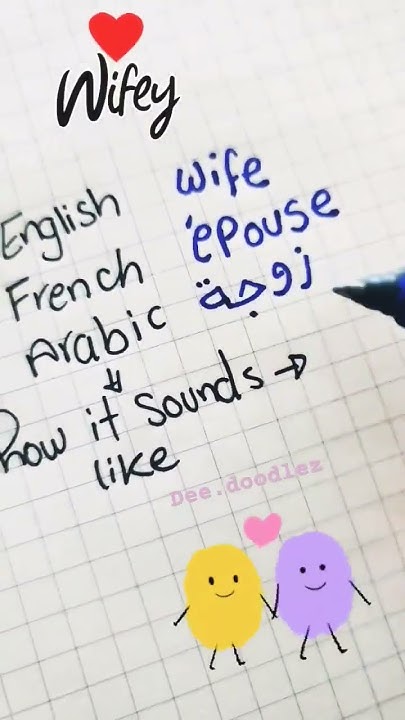 Wifey
English wife
French 'epouse
Arabic زوجة
how it sounds →
like
Dee.doodlez